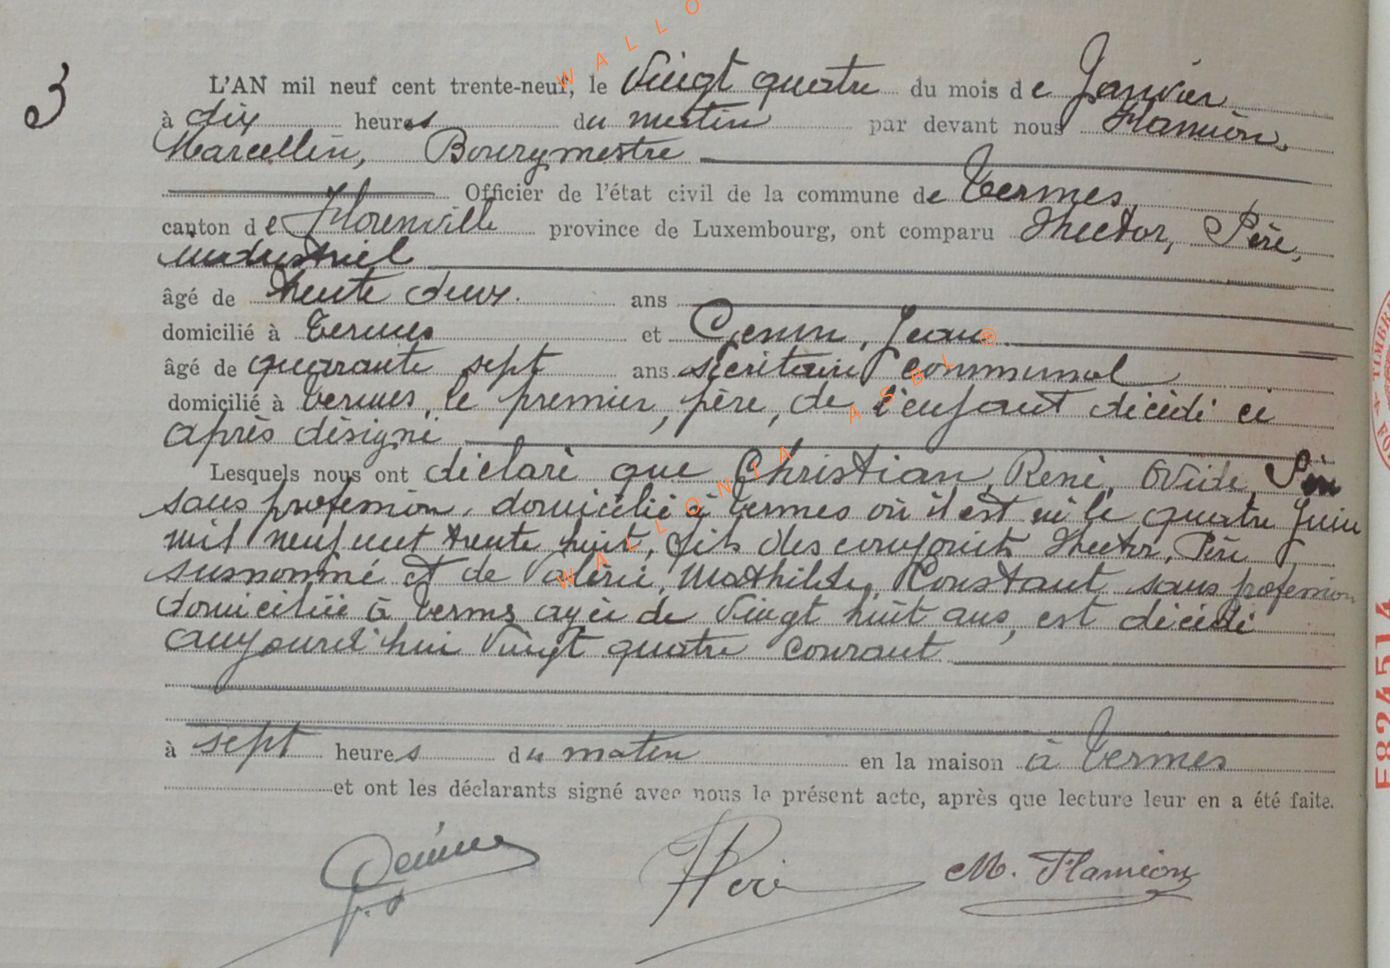 3
L'AN mil neuf cent trente-neuf, le Vingt quatre du mois de Janvier
à dix heures du matin par devant nous Flamion,
Marcellin, Bourgmestre
Officier de l'état civil de la commune de Termes
canton de Florenville province de Luxembourg, ont comparu Hector, Père,
industriel
âgé de trente deux ans
domicilié à Termes et Genin, Jean
âgé de quarante sept ans secrétaire communal
domicilié à Termes, le premier, père, de l'enfant décédé ci
après désigné
Lesquels nous ont déclaré que Christian, René, Ovide, Père
sans profession, domicilié à Termes où il est né le quatre Juin
mil neuf cent trente huit, fils des conjoints Hector, Père
susnommé et de Valérie, Mathilde, Constant, sans profession
domiciliée à Termes agée de Vingt huit ans, est décédé
aujourd'hui Vingt quatre courant
à sept heures du matin en la maison à Termes
et ont les déclarants signé avec nous le présent acte, après que lecture leur en a été faite.
HPère M. Flamion
WALLONIA ASBL ©
WALLO
TIMBRE
F824514